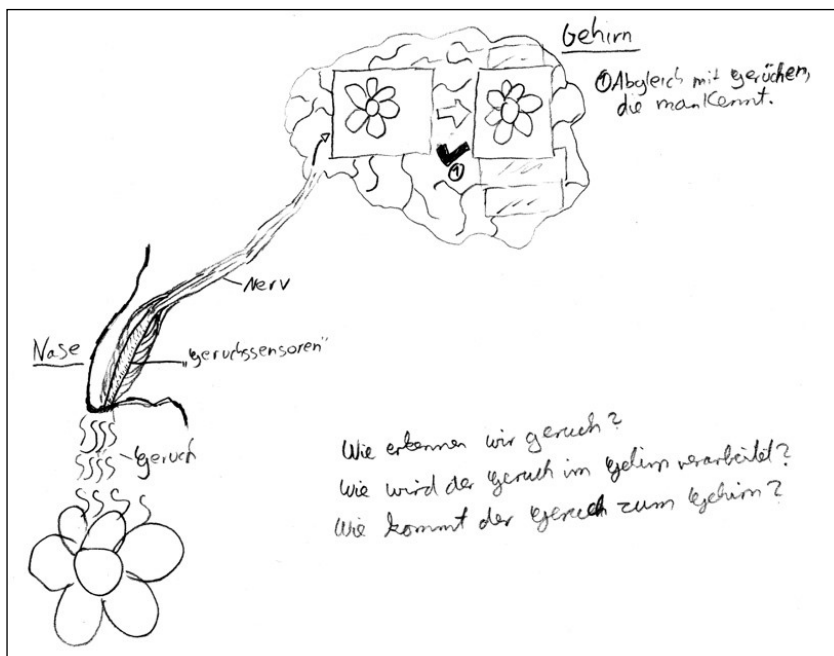 Gehirn
① Abgleich mit Gerüchen,
die man kennt.
①
Nerv
Nase
„Geruchssensoren"
Geruch
Wie erkennen wir Geruch?
Wie wird der Geruch im Gehirn verarbeitet?
Wie kommt der Geruch zum Gehirn?